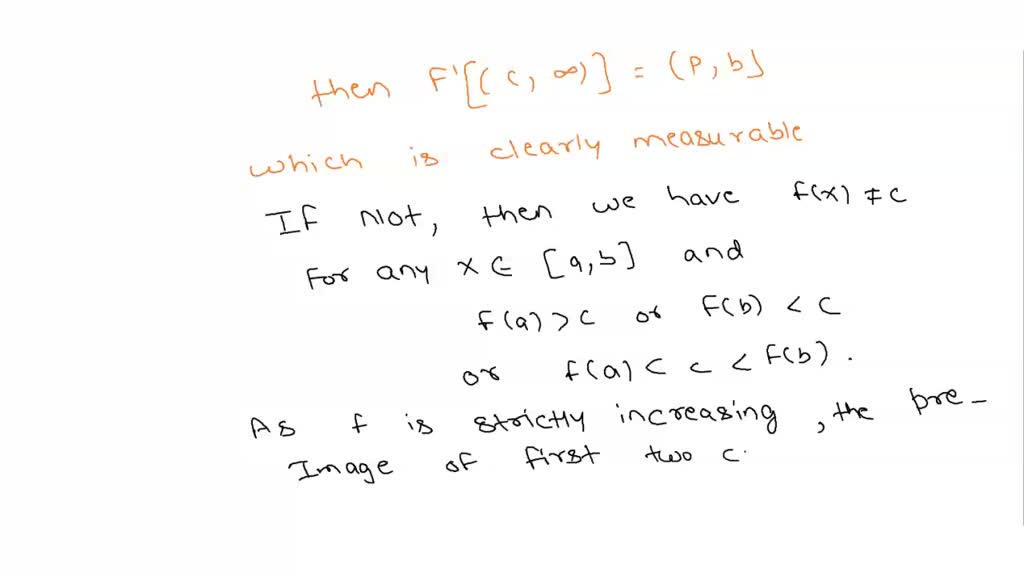 then F'[(c, ∞)] = (P, b]
which is clearly measurable
If Not, then we have f(x) ≠ c
For any x ∈ [a,b] and
f(a) > c or F(b) < c
or f(a) < c < F(b).
As f is strictly increasing, the pre-
Image of first two c